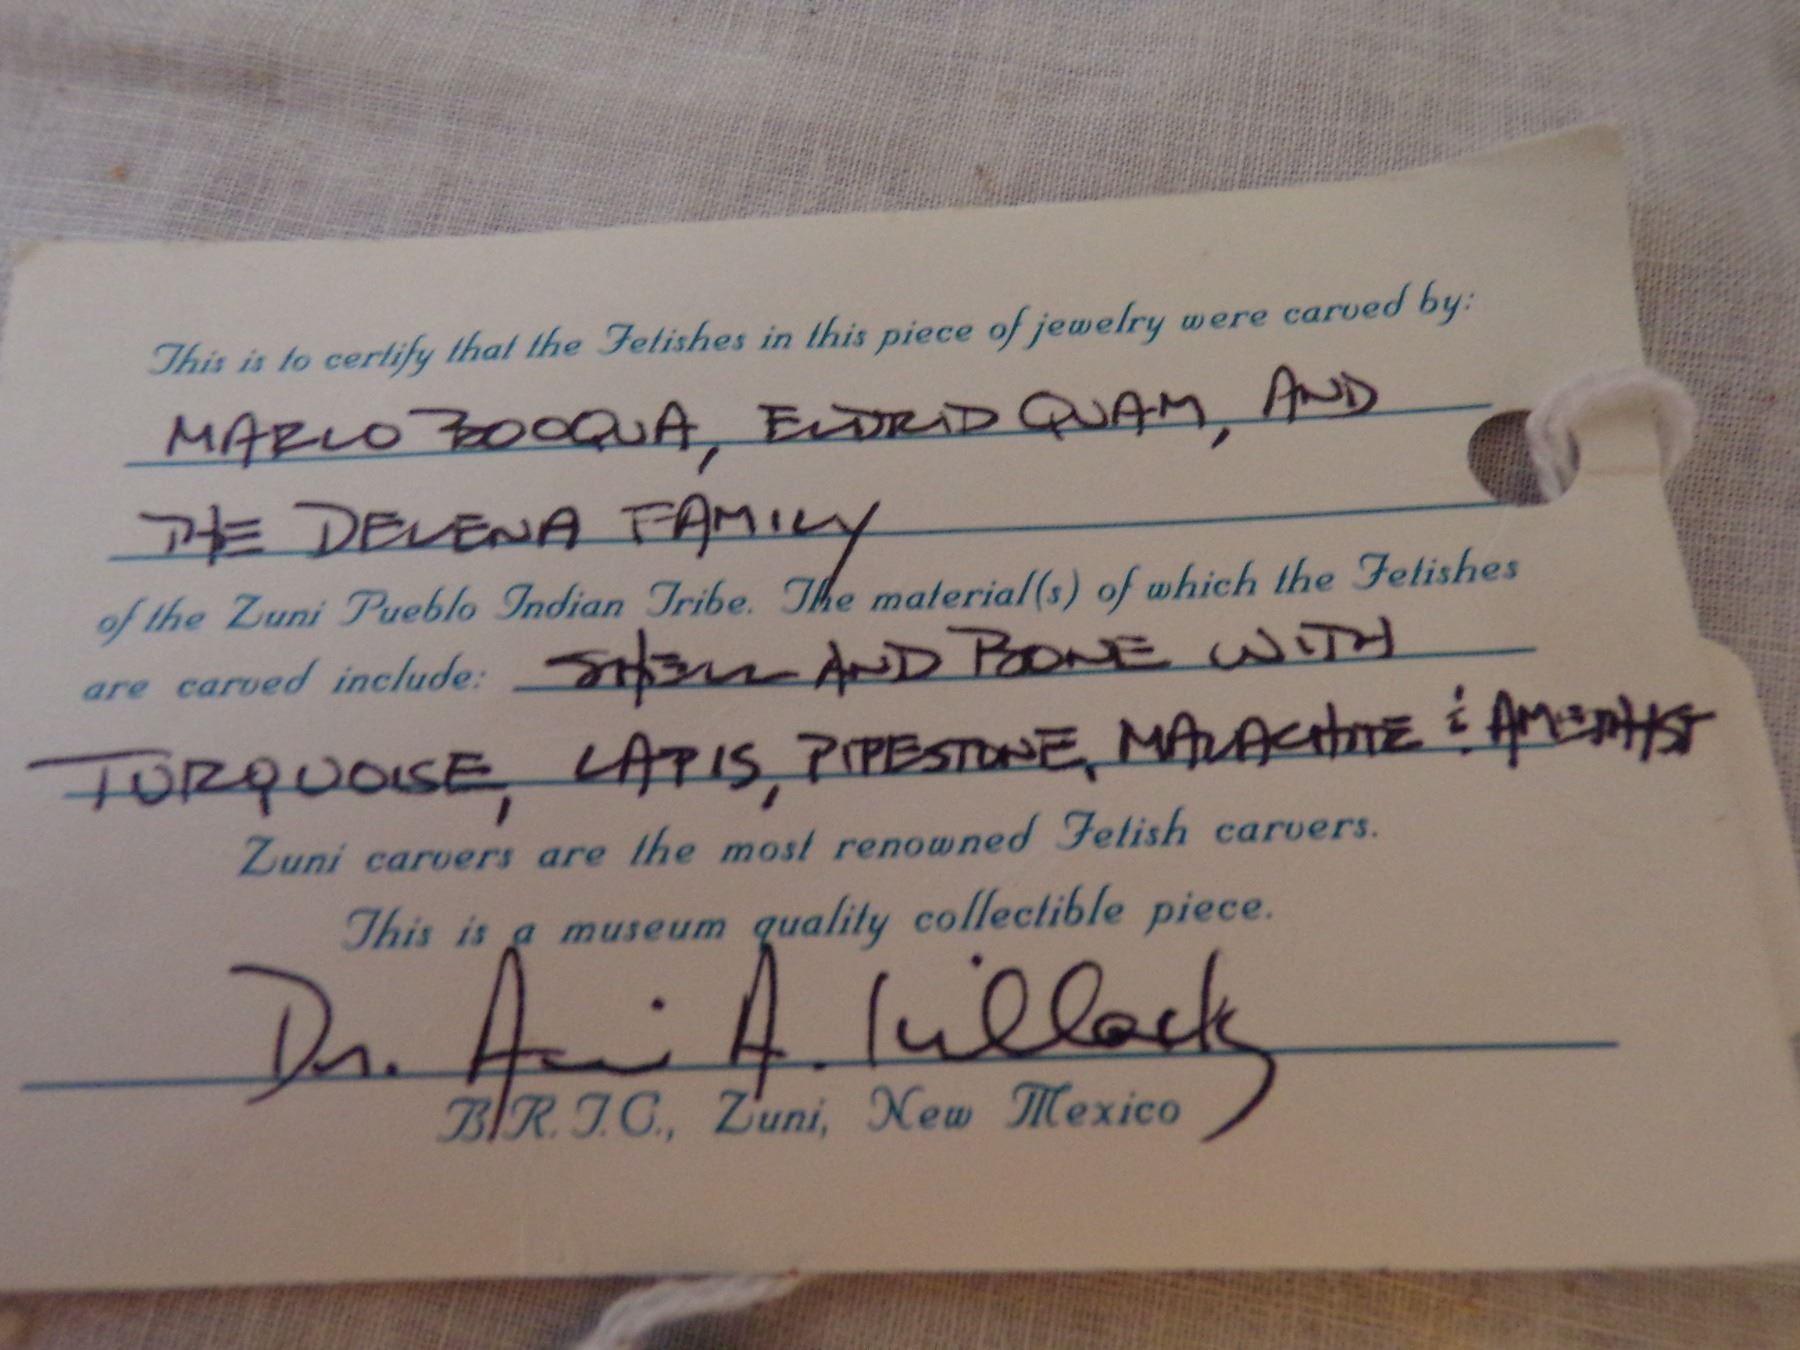 This is to certify that the Fetishes in this piece of jewelry were carved by:
MARLO BOOQUA, ELDRID QUAM, AND
THE DELENA FAMILY
of the Zuni Pueblo Indian Tribe. The material(s) of which the Fetishes
are carved include: SHELL AND BONE WITH
TURQUOISE, LAPIS, PIPESTONE, MALACHITE & AMETHYST
Zuni carvers are the most renowned Fetish carvers.
This is a museum quality collectible piece.
Dr. A.
B.R.I.C., Zuni, New Mexico